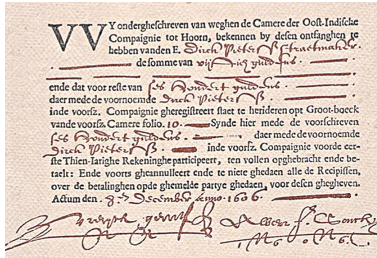 VVY ondergheschreven van weghen de Camere der Oost-Indische
Compagnie tot Hoorn, bekennen by desen ontfanghen te
hebben vanden E. Dirck Pieterss Straetmaker
de somme van vijftich guldens
ende dat voor reste van ses hondert guldens
daer mede de voornoemde Dirck Pieterss
inde voorsz. Compagnie gheregistreert staet te herideren opt Groot-boeck
vande voorsz. Camere folio. 10 Synde hier mede de voorschreven
ses hondert guldens daer mede de voornoemde
Dirck Pieterss inde voorsz. Compagnie voorde eer-
ste Thien-Iarighe Rekeninghe participeert, ten vollen opghebracht ende be-
taelt: Ende voorts gheannulleert ende te niete ghedaen alle de Recipissen,
over de betalinghen opde ghemelde partye ghedaen, voor desen ghegheven.
Actum den December Anno. 1606.